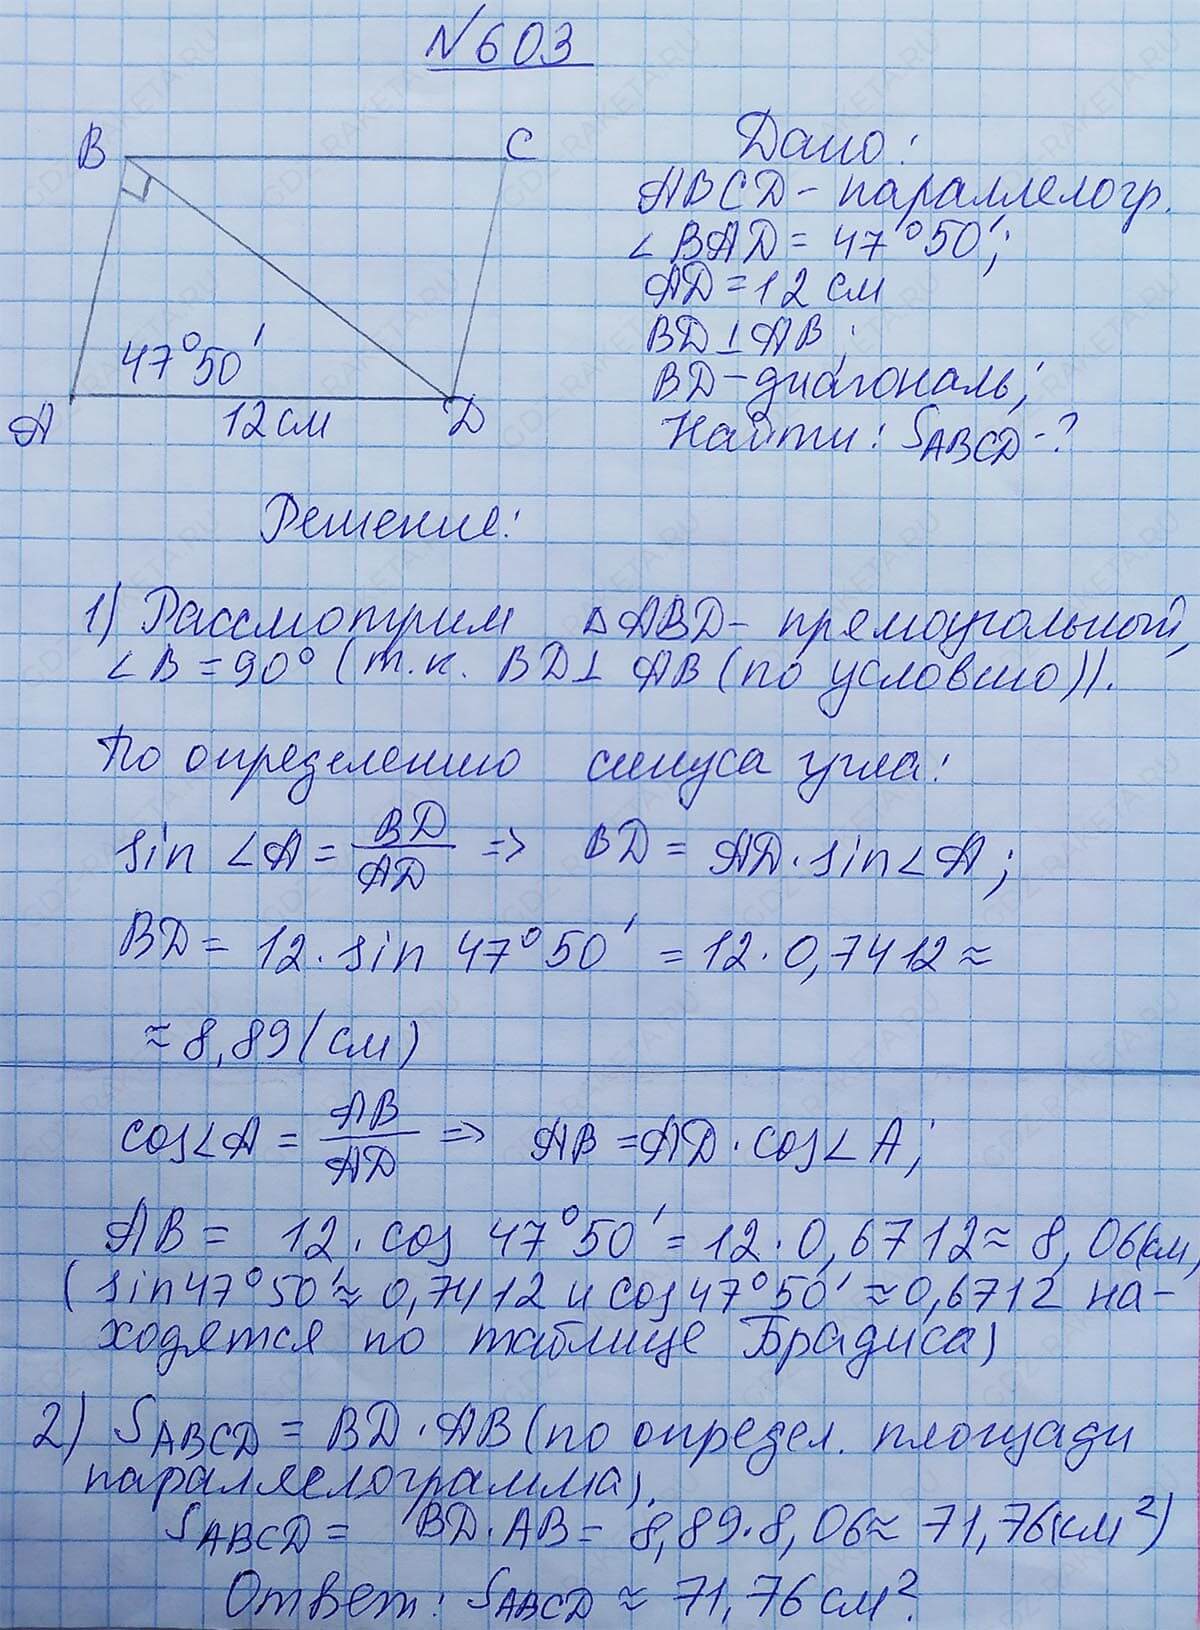 №603
B
C
47°50′
A
12 см
D
Дано:
ABCD - параллелогр.
∠BAD = 47°50′;
AD = 12 см
BD ⊥ AB;
BD - диагональ;
Найти: SABCD - ?
Решение:
1) Рассмотрим △ABD - прямоугольный,
∠B = 90° (т.к. BD ⊥ AB (по условию)).
По определению синуса угла:
sin ∠A = BD/AD => BD = AD · sin∠A;
BD = 12 · sin 47°50′ = 12 · 0,7412 ≈
≈ 8,89 (см)
cos∠A = AB/AD => AB = AD · cos∠A;
AB = 12 · cos 47°50′ = 12 · 0,6712 ≈ 8,06 (см)
(sin47°50′ ≈ 0,7412 и cos47°50′ ≈ 0,6712 на-
ходятся по таблице Брадиса)
2) SABCD = BD · AB (по определ. площади
параллелограмма),
SABCD = BD · AB = 8,89 · 8,06 ≈ 71,76 (см²)
Ответ: SABCD ≈ 71,76 см².